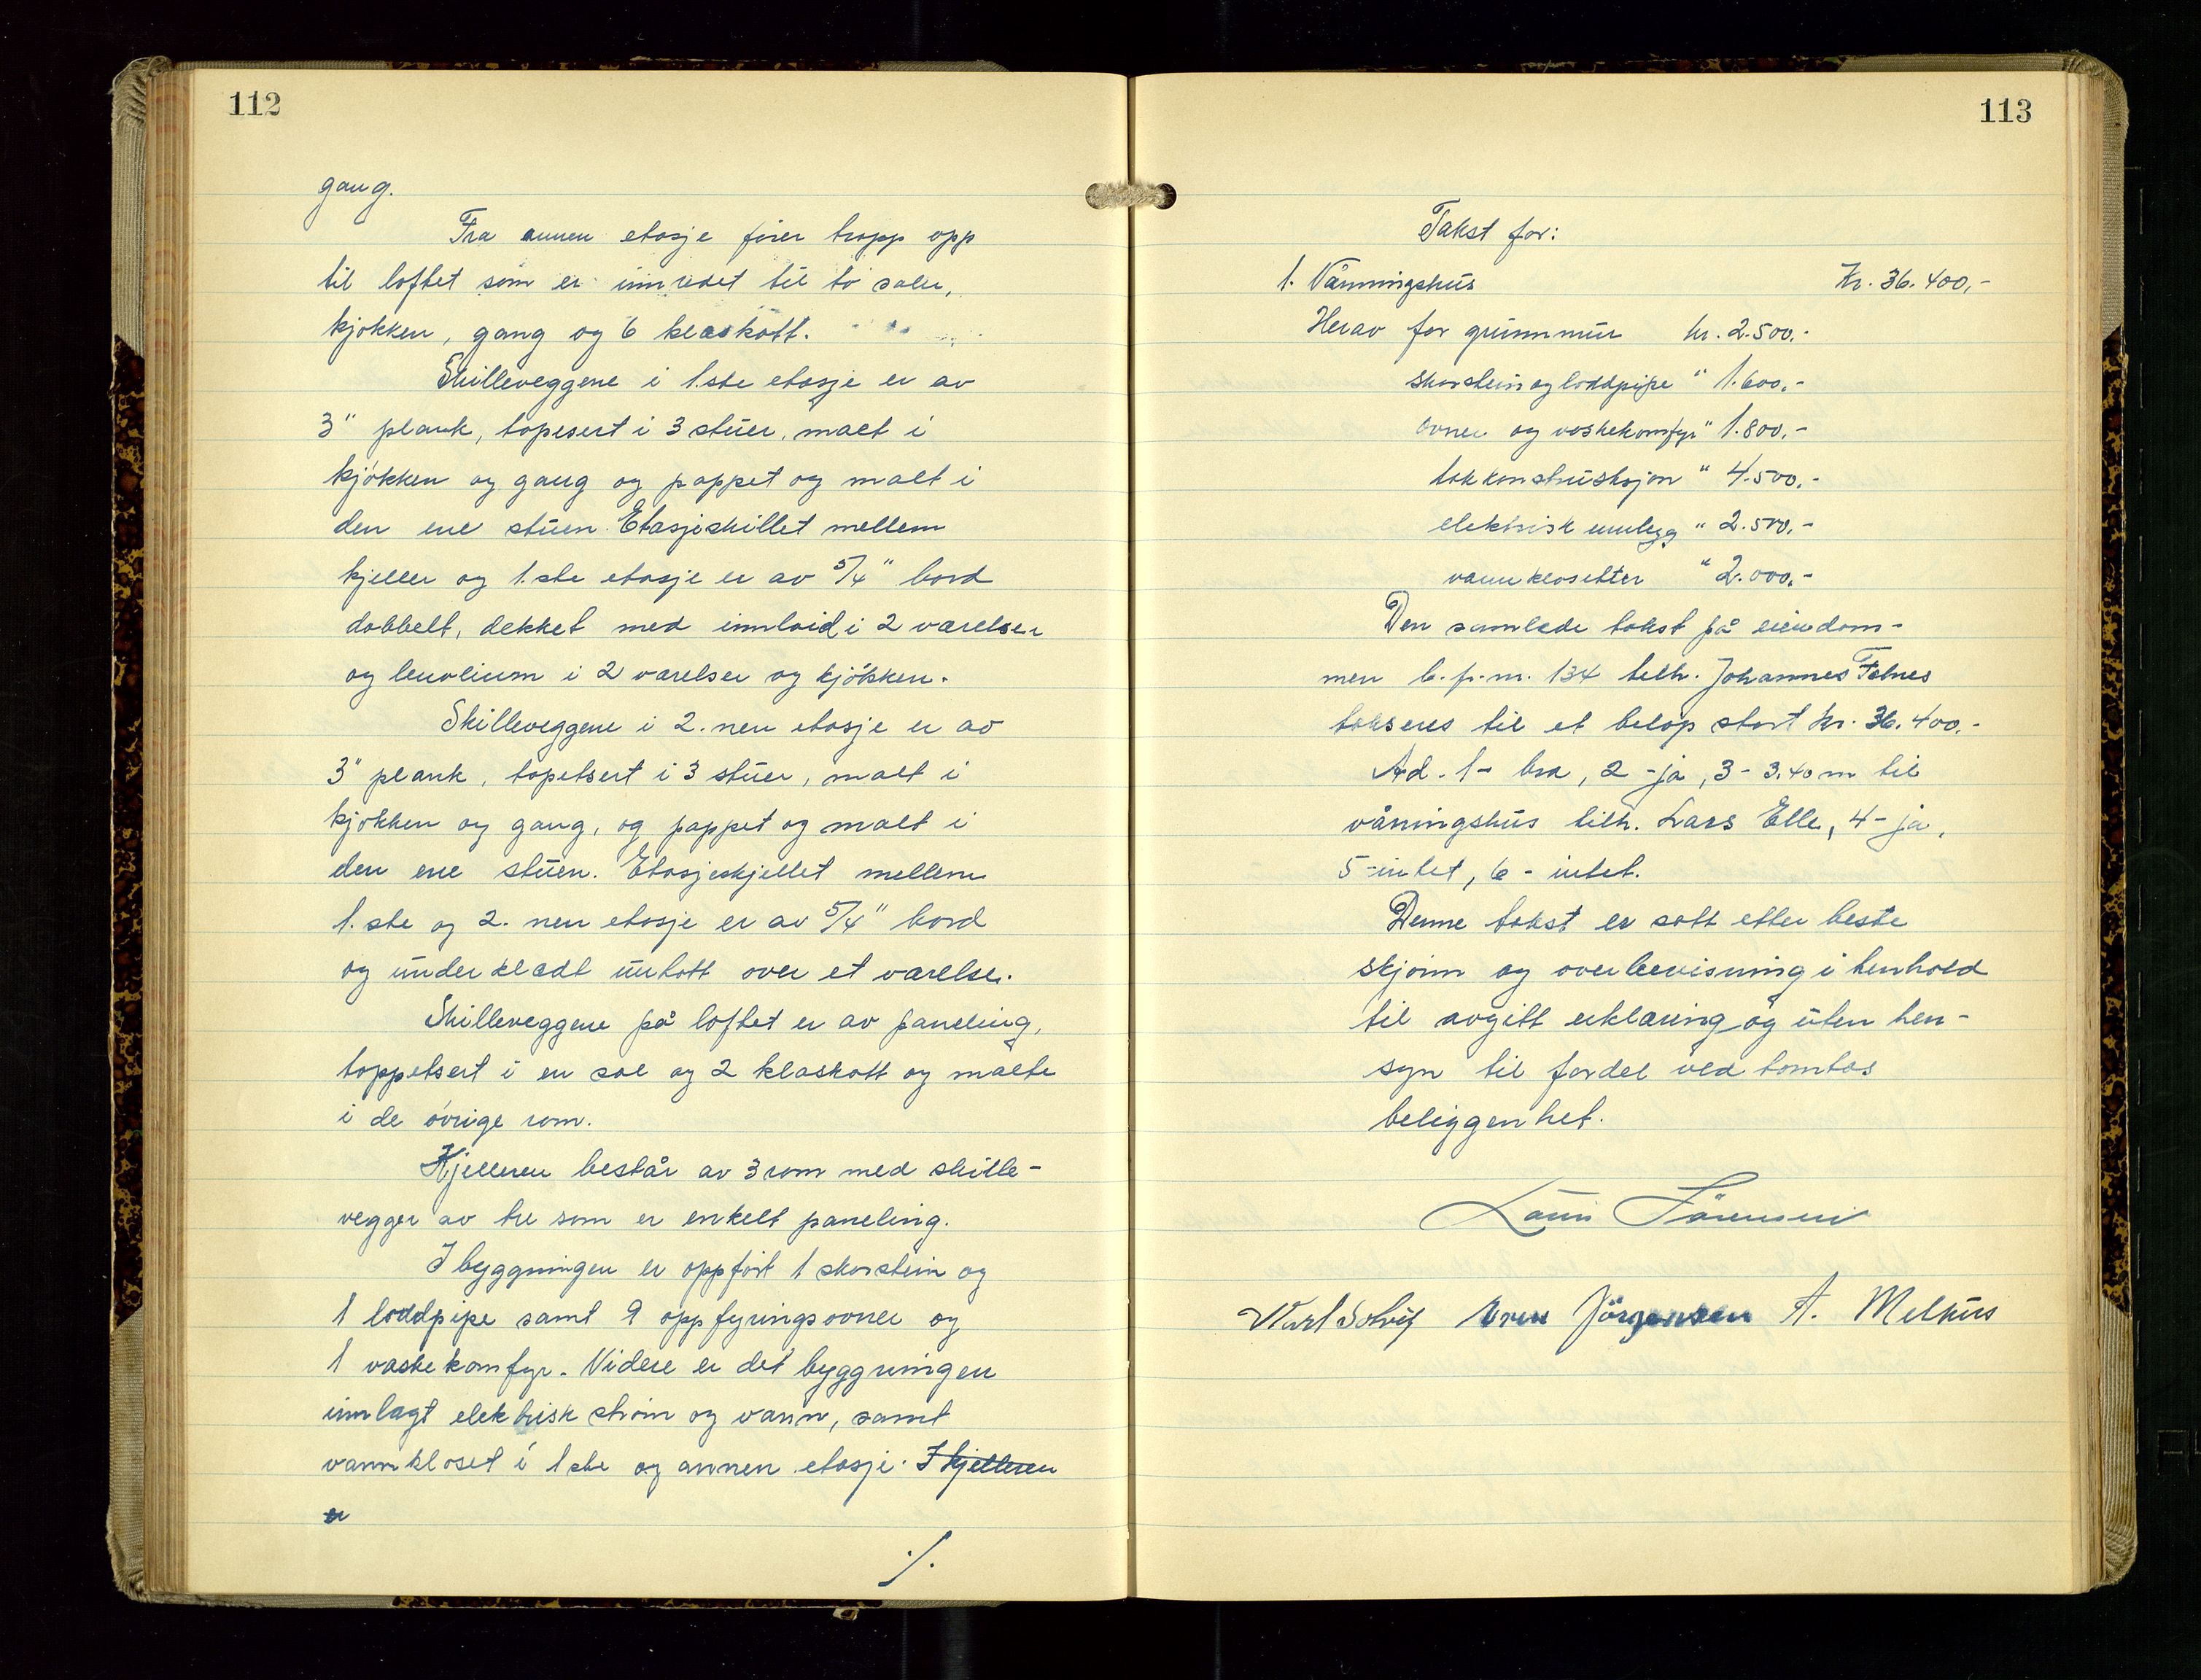 112
gang.
Fra annen etasje fører trapp opp
til loftet som er innredet til to saler,
kjøkken, gang og 6 klaskott.
Skilleveggene i 1.ste etasje er av
3" plank, tapesert i 3 stuer, malt i
kjøkken og gang og pappet og malt i
den ene stuen. Etasjeskillet mellem
kjeller og 1.ste etasje er av 5/4" bord
dobbelt, dekket med innlaid i 2 værelser
og lenolium i 2 værelser og kjøkken.
Skilleveggene i 2.nen etasje er av
3" plank, tapetsert i 3 stuer, malt i
kjøkken og gang, og pappet og malt i
den ene stuen. Etasjeskjellet mellem
1.ste og 2.nen etasje er av 5/4" bord
og underkledt untatt over et værelse.
Skilleveggene på loftet er av paneling,
tappetsert i en sal og 2 klaskott og malte
i de øvrige rom.
Kjelleren består av 3 rom med skille-
vegger av tre som er enkelt paneling.
I byggningen er oppført 1 skorstein og
1 loddpipe samt 9 oppfyringsovner og
1 vaskekomfyr. Videre er det byggningen
innlagt elektrisk strøm og vann, samt
vannkloset i 1ste og annen etasje. I kjelleren
er
./.
113
Takst for:
1. Våningshus Kr. 36.400,-
Herav for grunnmur kr. 2.500.-
skorstein og loddpipe " 1.600.-
ovner og vaskekomfyr " 1.800.-
takkonstruksjon " 4.500.-
elektrisk innlegg " 2.500.-
vannklosetter " 2.000.-
Den samlede takst på eiendom-
men b.fr.nr. 134 tilh. Johannes Falnes
takseres til et beløp stort kr. 36.400.-
Ad. 1- bra, 2 -ja, 3- 3.40 m til
våningshus tilh. Lars Elle, 4- ja,
5-intet, 6- intet.
Denne takst er satt etter beste
skjønn og overbevisning i henhold
til avgitt erklæring og uten hen-
syn til fordel ved tomtas
beliggenhet.
Lauis Sørensen
Karl Solvig Jørgensen A. Melhus